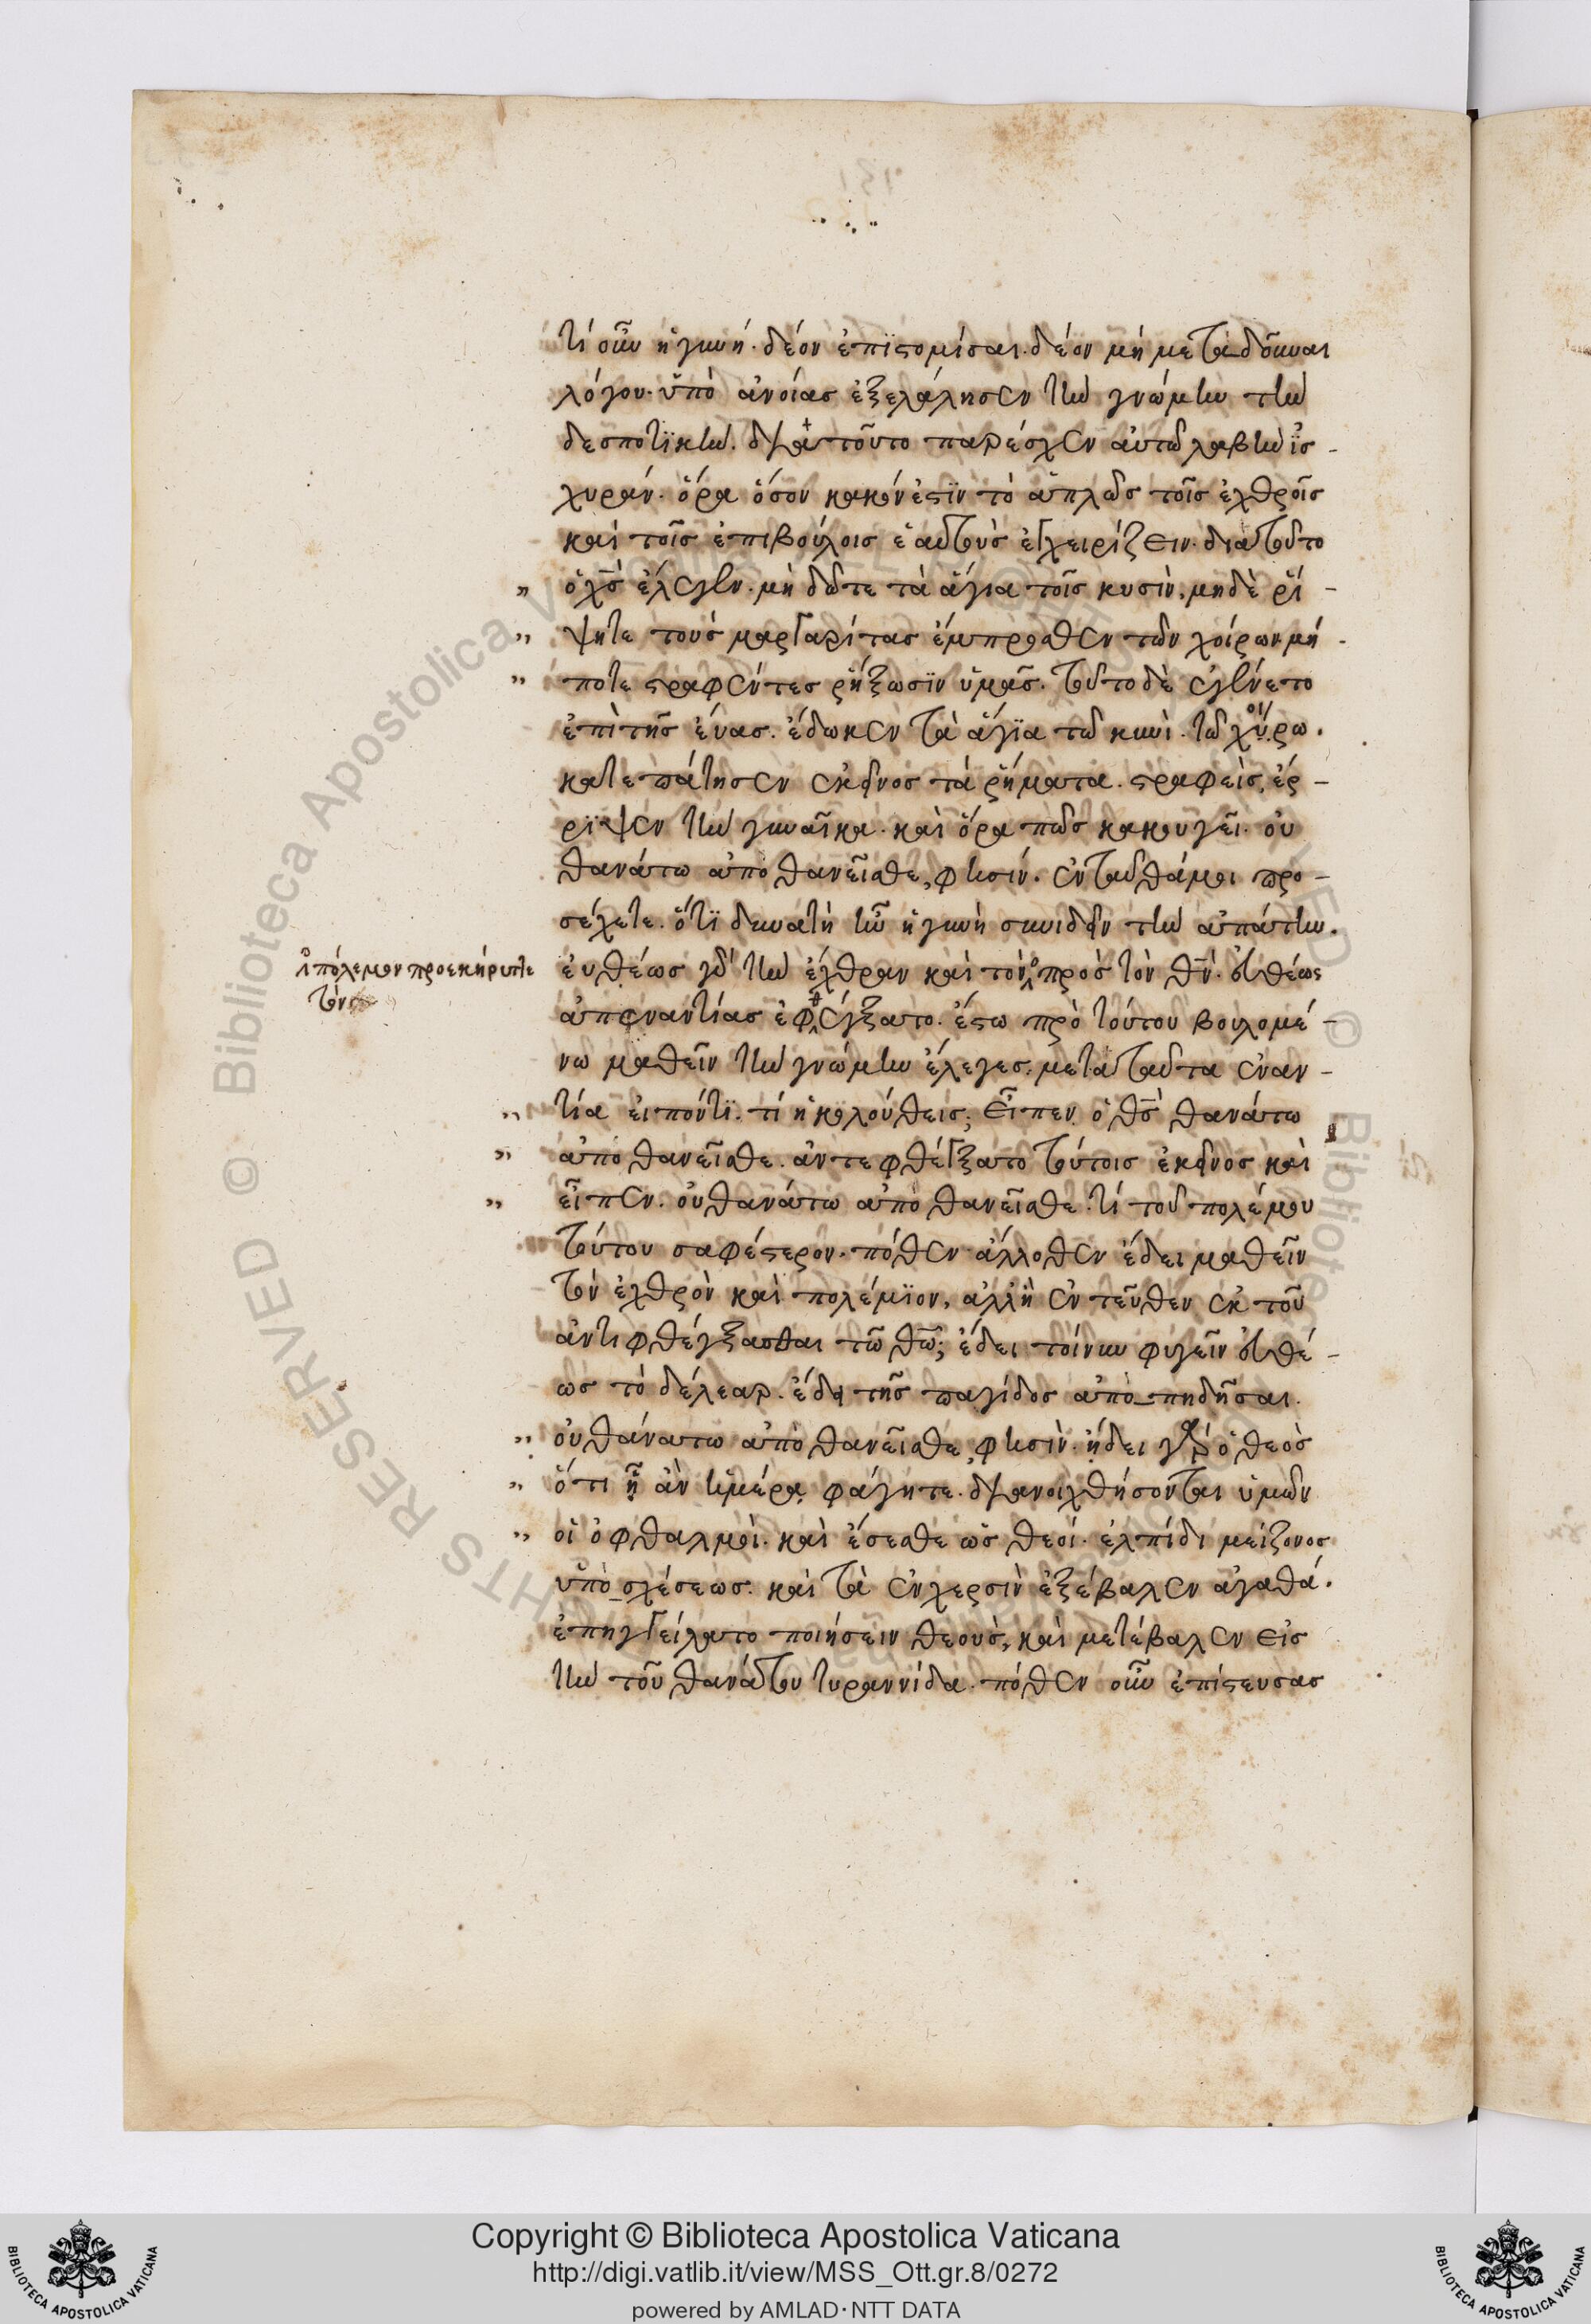 τί οὖν ἡ γυνή. δέον ἐπϊστομίσαι. δέον μὴ μεταδοῦναι
λόγου. ὑπὸ ἀνοίας ἐξελάλησεν τὴν γνώμην τὴν
δεσποτϊκήν. διὰ τοῦτο παρέσχεν αὐτῶ λαβὴν ἰσ-
χυράν. ὅρα ὅσον κακόν ἐστϊν τὸ ἁπλῶς τοῖς ἐχθροῖς
καὶ τοῖς ἐπιβούλοις ἑαυτοὺς ἐγχειρίζειν. διατοῦτο
ὁ χς ἔλεγεν. μὴ δῶτε τὰ ἅγια τοῖς κυσὶν, μηδὲ ῥί-
ψητε τοὺς μαργαρίτας ἔμπροσθεν τῶν χοίρων μή-
ποτε στραφέντες ῥήξωσϊν ὑμᾶς. τοῦτο δὲ ἐγένετο
ἐπὶ τῆς ἔυας. ἔδωκεν τὰ ἅγϊα τῶ κυνὶ. τῶ χοίρω.
κατεπάτησεν ἐκεῖνος τὰ ῥήματα. στραφεὶς, ἔρ-
ρϊψεν τὴν γυναῖκα. καὶ ὅρα πῶς κακουγεῖ. οὐ
θανάτω ἀποθανεῖσθε, φησίν. ἐνταῦθά μοι προ-
σέχετε. ὅτϊ δυνατὴ ἦν ἡ γυνὴ συνιδεῖν τὴν ἀπάτην.
ἐυθέως γὰρ τὴν ἔχθραν καὶ τὸν πρὸς τὸν θν. εὐθέως
ἀπεναντίας ἐφθέγξατο. ἔστω πρὸ τούτου βουλομέ-
νω μαθεῖν τὴν γνώμην ἔλεγες. μετὰ ταῦτα ἐναν-
τία ειπόντϊ. τί ἠκολούθεις; εἶπεν ὁ θς θανάτω
ἀποθανεῖσθε. ἀντεφθέγξατο τούτοις ἐκεῖνος καὶ
εἶπεν. οὐ θανάτω ἀποθανεῖσθε. τί τοῦ πολέμου
τούτου σαφέστερον. πόθεν ἄλλοθεν ἔδει μαθεῖν
τὸν ἐχθρὸν καὶ πολέμϊον, ἀλλ' ἢ ἐντεῦθεν ἐκ τοῦ
ἀντιφθέγξασθαι τῶ θῶ; ἔδει τοίνυν φυγεῖν εὐθέ-
ως τὸ δέλεαρ. ἔδει τῆς παγίδος ἀποπηδῆσαι.
οὐ θάνατω ἀποθανεῖσθε, φησὶν. ἤδει γὰρ ὁ θεὸς
ὅτι ᾗ ἂν ἡμέρα φάγητε. διανοιχθήσονται ὑμῶν
οἱ ὀφθαλμοὶ. καὶ ἔσεσθε ὡς θεοί. ἐλπίδι μείζονος
ὑποσχέσεως. καὶ τὰ ἐν χερσὶν ἐξέβαλεν ἀγαθά.
ἐπηγγείλατο ποιήσειν θεοὺς, καὶ μετέβαλεν εἰς
τὴν τοῦ θανάτου τυραννίδα. πόθεν οὖν ἐπίστευσας
πόλεμον προεκήρυττε
τὸν
Copyright © Biblioteca Apostolica Vaticana
http://digi.vatlib.it/view/MSS_Ott.gr.8/0272
powered by AMLAD·NTT DATA